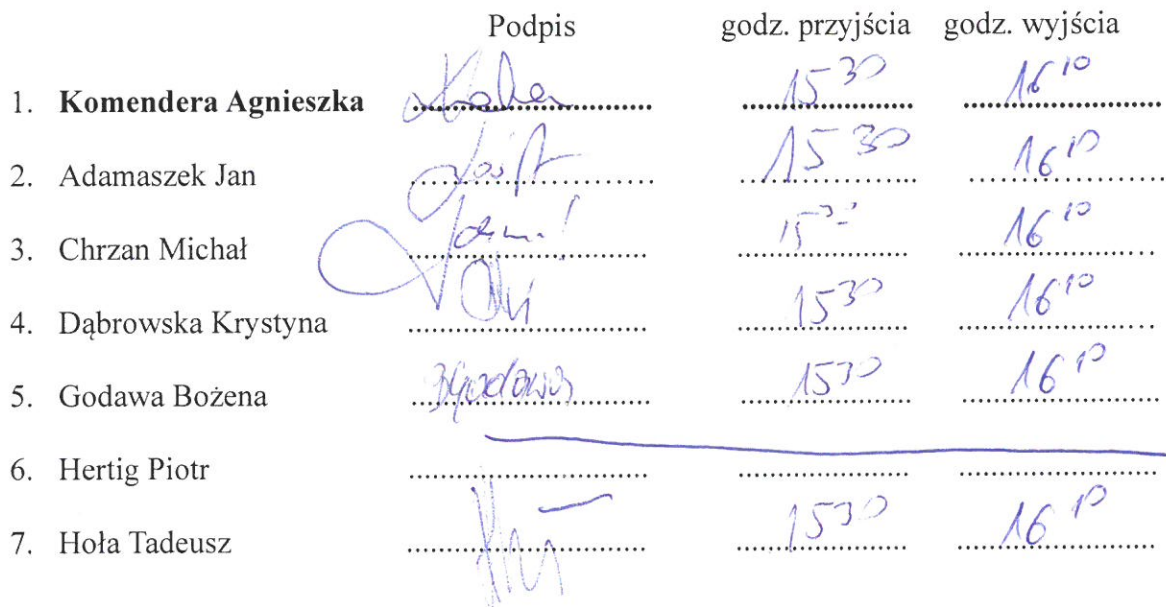 Podpis godz. przyjścia godz. wyjścia
1. Komendera Agnieszka 15 30 16 10
2. Adamaszek Jan 15 30 16 10
3. Chrzan Michał 15 30 16 10
4. Dąbrowska Krystyna 15 30 16 10
5. Godawa Bożena BGodawa 15 30 16 10
6. Hertig Piotr
7. Hoła Tadeusz 15 30 16 10